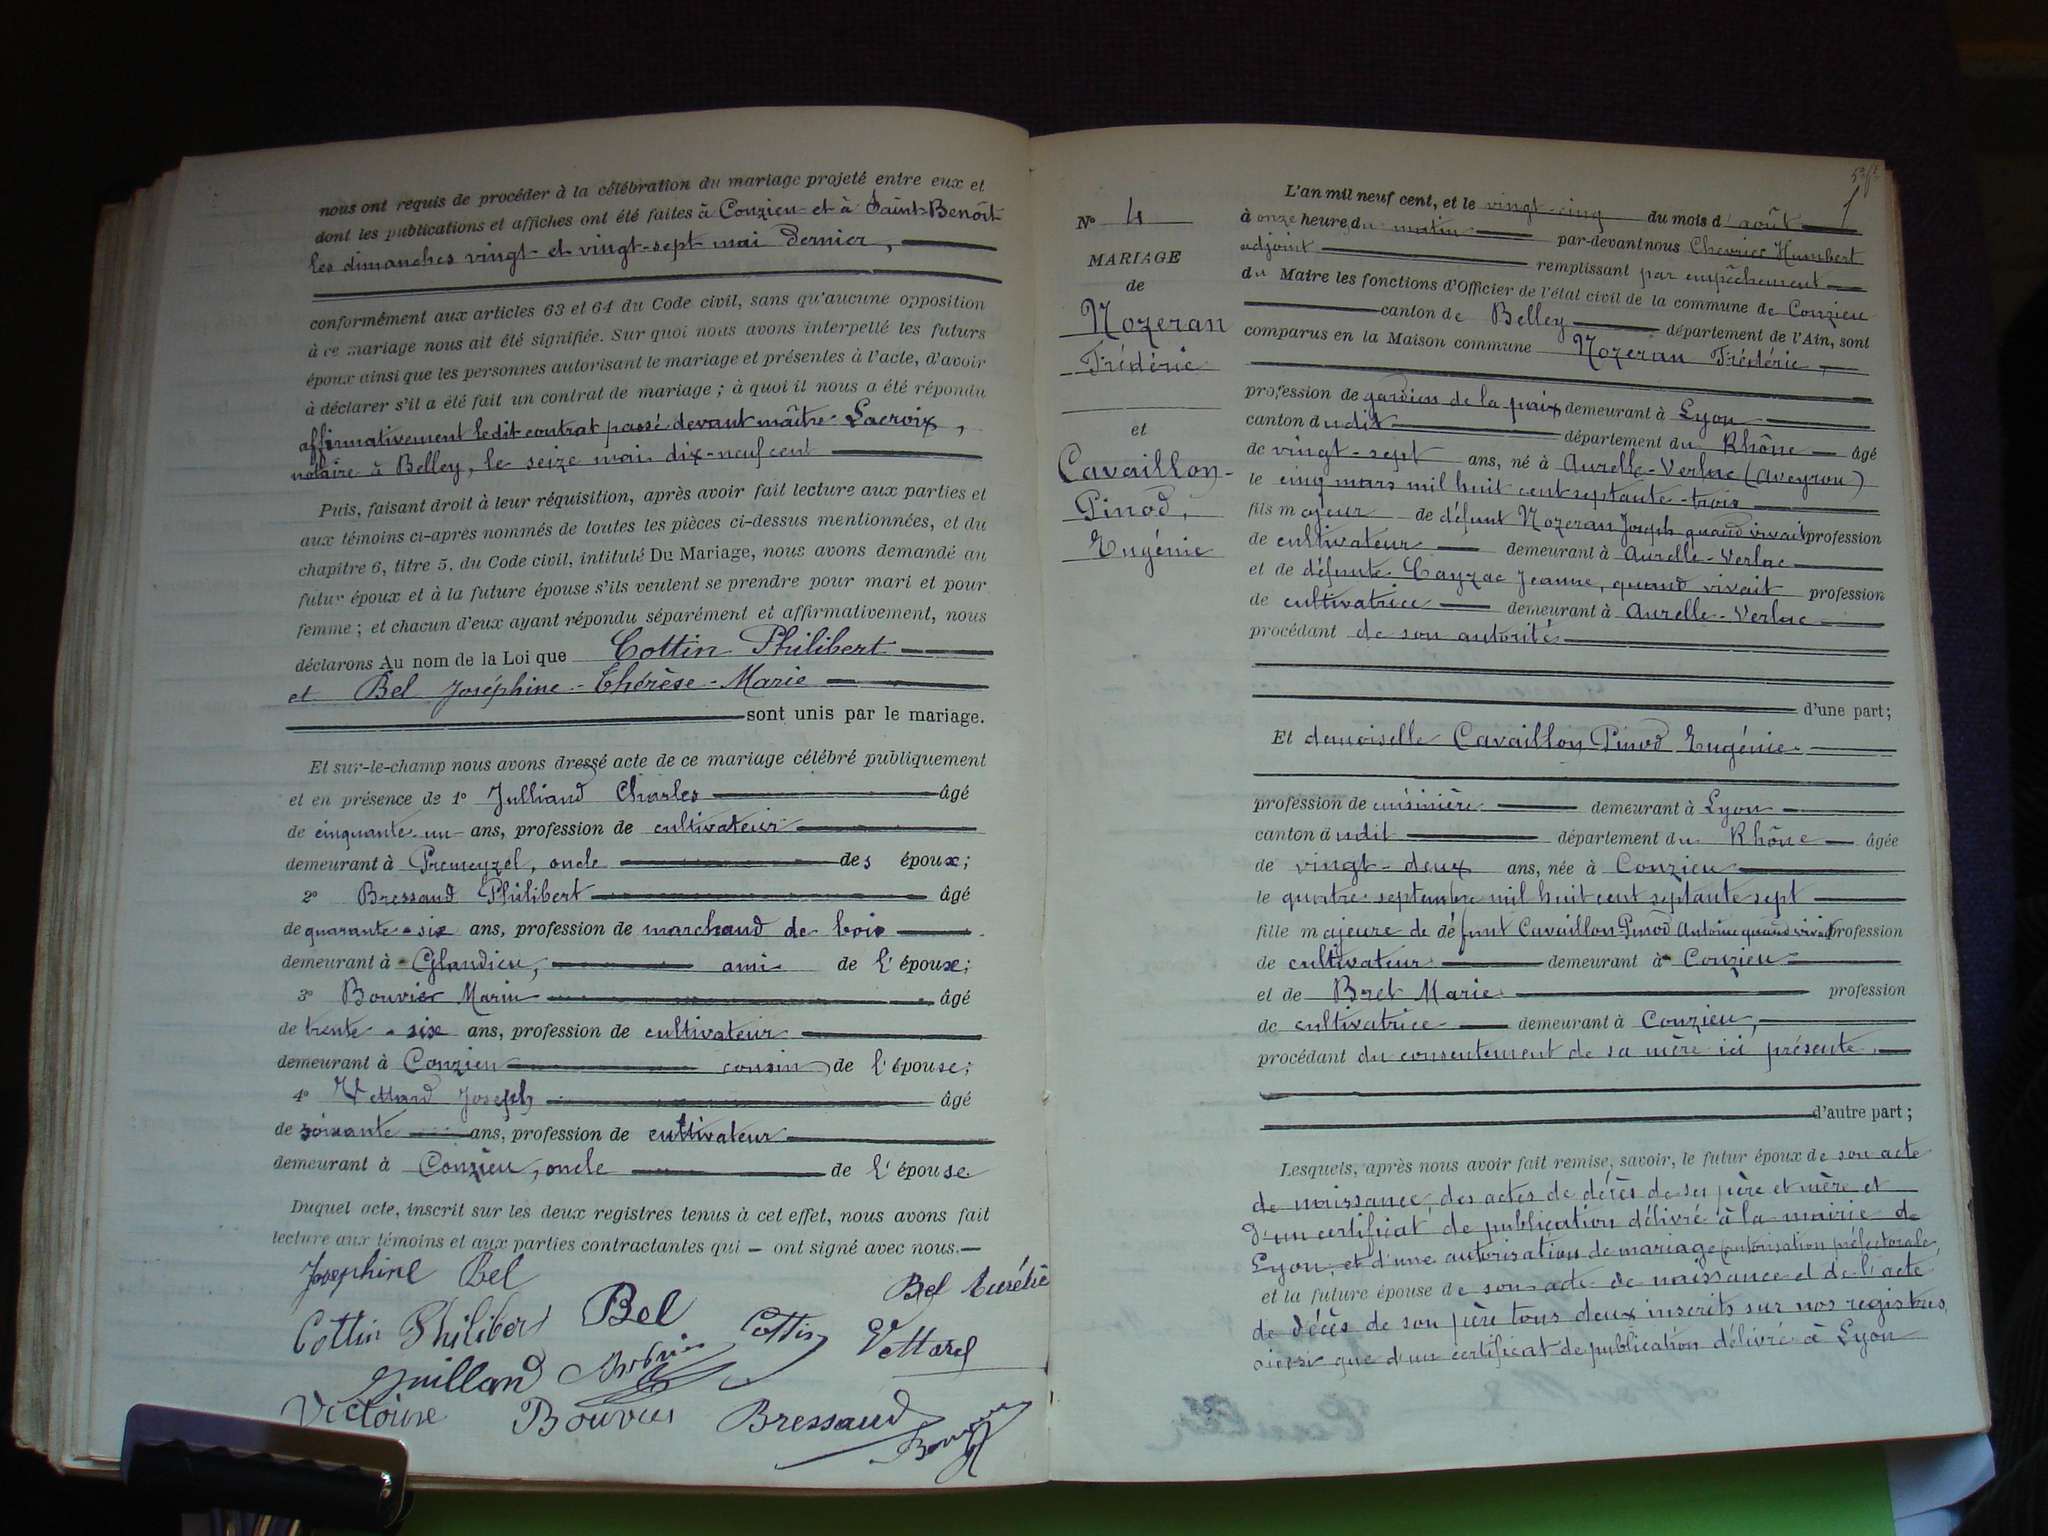 nous ont requis de procéder à la célébration du mariage projeté entre eux et
dont les publications et affiches ont été faites à Conzieu et à Saint-Benoît
les dimanches vingt et vingt-sept mai dernier,
conformément aux articles 63 et 64 du Code civil, sans qu'aucune opposition
à ce mariage nous ait été signifiée. Sur quoi nous avons interpellé les futurs
époux ainsi que les personnes autorisant le mariage et présentes à l'acte, d'avoir
à déclarer s'il a été fait un contrat de mariage ; à quoi il nous a été répondu
affirmativement ledit contrat passé devant maître Lacroix,
notaire à Belley, le seize mai dix-neuf cent
Puis, faisant droit à leur réquisition, après avoir fait lecture aux parties et
aux témoins ci-après nommés de toutes les pièces ci-dessus mentionnées, et du
chapitre 6, titre 5, du Code civil, intitulé Du Mariage, nous avons demandé au
futur époux et à la future épouse s'ils veulent se prendre pour mari et pour
femme ; et chacun d'eux ayant répondu séparément et affirmativement, nous
déclarons Au nom de la Loi que Cottin Philibert
et Bel Joséphine-Thérèse-Marie
sont unis par le mariage.
Et sur-le-champ nous avons dressé acte de ce mariage célébré publiquement
et en présence de 1° Julliand Charles âgé
de cinquante-un ans, profession de cultivateur
demeurant à Premeyzel, oncle des époux;
2° Bressaud Philibert âgé
de quarante-six ans, profession de marchand de bois
demeurant à Glandieu, ami de l'époux;
3° Bouvier Marin âgé
de trente-six ans, profession de cultivateur
demeurant à Conzieu cousin de l'épouse;
4° Vettard Joseph âgé
de soixante ans, profession de cultivateur
demeurant à Conzieu, oncle de l'épouse
Duquel acte, inscrit sur les deux registres tenus à cet effet, nous avons fait
lecture aux témoins et aux parties contractantes qui ont signé avec nous.
Josephine Bel
Bel Aurélie
Cottin Philibert Bel Cottin Vettard
Juilland
Victoine Bouvier Bressaud
N° 4
MARIAGE
de
Nozeran
Frédéric
et
Cavaillon-
Pinod,
Eugénie
L'an mil neuf cent, et le vingt-cinq du mois d'août
à onze heures du matin par-devant nous Chevrier Humbert
adjoint remplissant par empêchement
du Maire les fonctions d'Officier de l'état civil de la commune de Conzieu
canton de Belley département de l'Ain, sont
comparus en la Maison commune Nozeran Frédéric,
profession de gardien de la paix demeurant à Lyon
canton dudit département du Rhône âgé
de vingt-sept ans, né à Aurelle-Verlac (Aveyron)
le cinq mars mil huit cent septante-trois
fils majeur de défunt Nozeran Joseph quand vivait profession
de cultivateur demeurant à Aurelle-Verlac
et de défunte Cayzac Jeanne, quand vivait profession
de cultivatrice demeurant à Aurelle-Verlac
procédant de son autorité
d'une part;
Et demoiselle Cavaillon Pinod Eugénie
profession de cuisinière demeurant à Lyon
canton dudit département du Rhône âgée
de vingt-deux ans, née à Conzieu
le quatre septembre mil huit cent septante sept
fille majeure de défunt Cavaillon Pinod Antoine quand vivait profession
de cultivateur demeurant à Conzieu
et de Bret Marie profession
de cultivatrice demeurant à Conzieu,
procédant du consentement de sa mère ici présente
d'autre part;
Lesquels, après nous avoir fait remise, savoir, le futur époux de son acte
de naissance, des actes de décès de ses père et mère et
d'un certificat de publication délivré à la mairie de
Lyon, et d'une autorisation de mariage (autorisation préfectorale)
et la future épouse de son acte de naissance et de l'acte
de décès de son père tous deux inscrits sur nos registres,
ainsi que d'un certificat de publication délivré à Lyon